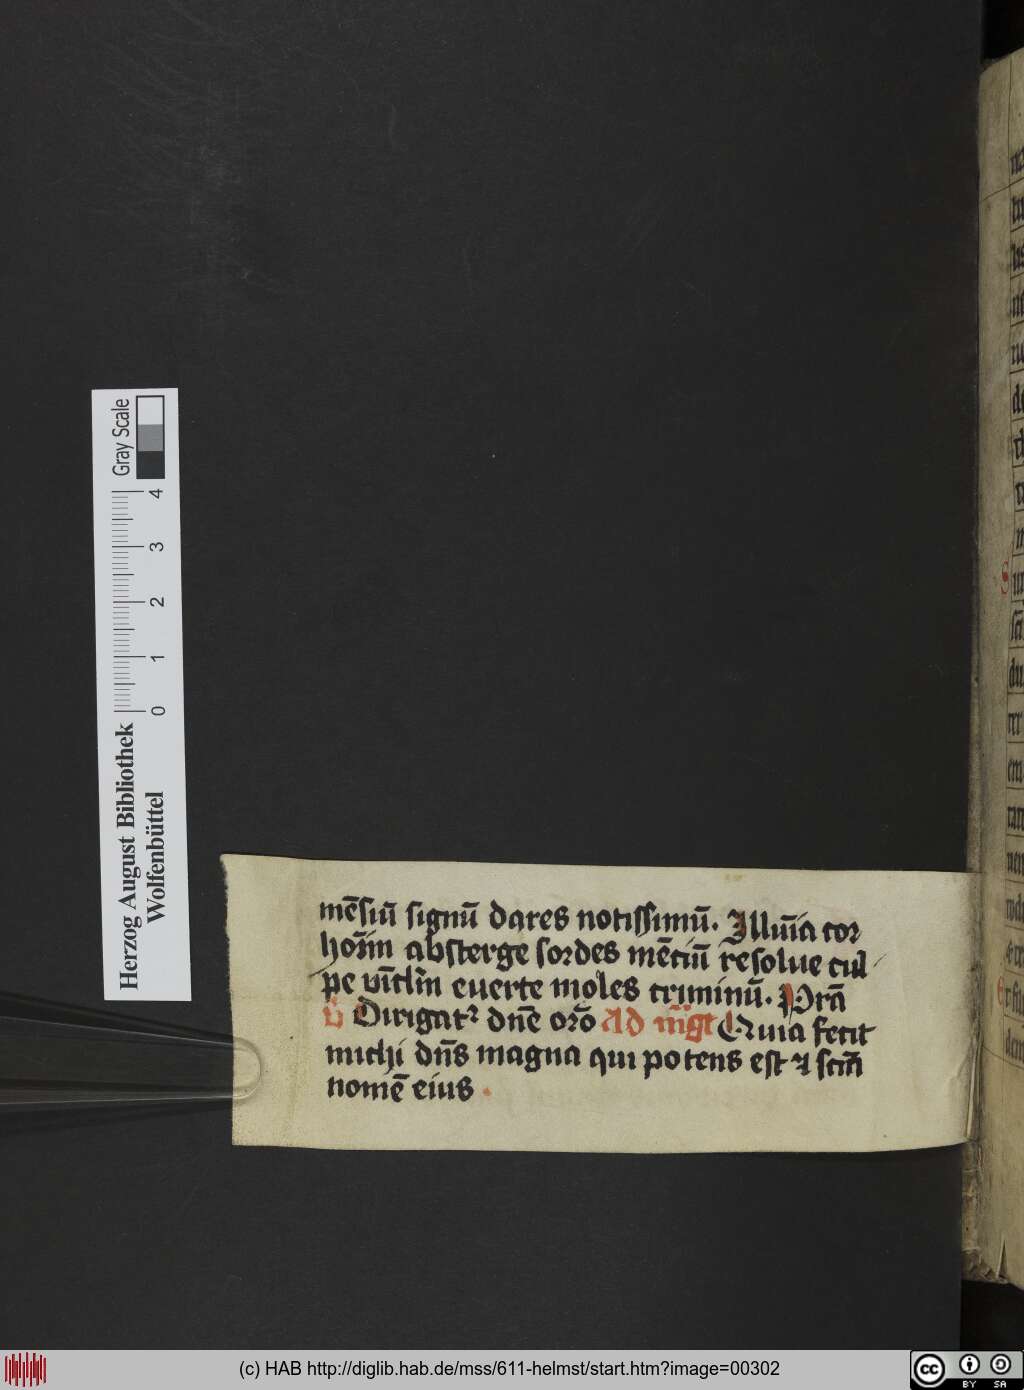 Herzog August Bibliothek
Wolfenbüttel
0 1 2 3 4
Gray Scale
mēsiū signū dares notissimū. Illūīa cor
horīn absterge sordes mētiū resolue cul
pe vītlīn euerte moles criminū. Prā
V Dirigat² dn̄e orō Ad mḡt Quia fecit
michi dn̄s magna qui potens est ⁊ scm̄
nomē eius .
(c) HAB http://diglib.hab.de/mss/611-helmst/start.htm?image=00302
cc BY SA